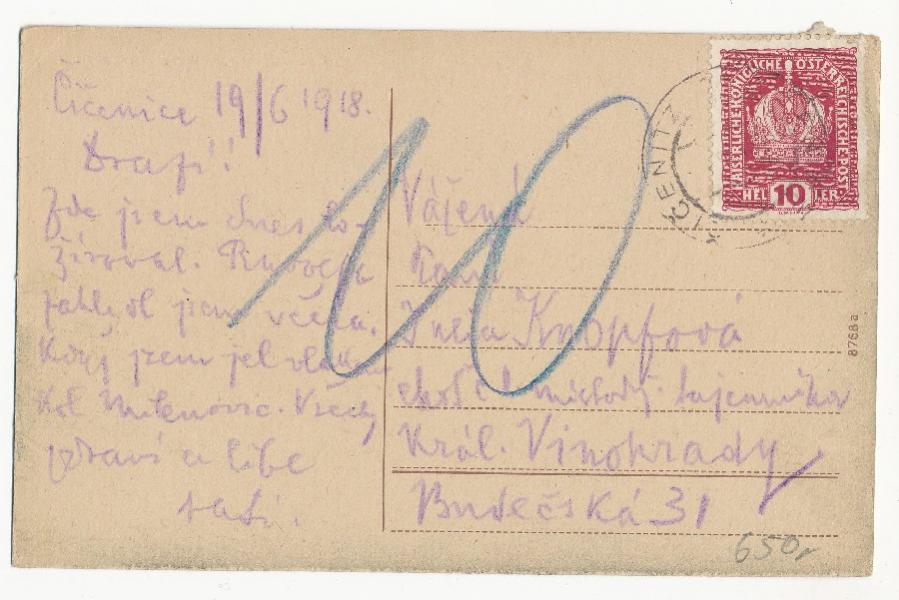 Číčenice 19/6 1918.
Drazí!
Zde jem dnes lo-
žíroval.
jsem včera.
Když jsem jel vlakem
kol Milenovic. Všechny
zdraví a líbe
tatí.
Vážená
Paní
Knopfová
choť c. k. místodrž. tajemníka
Král. Vinohrady
Budečská 31
10
KAISERLICHE KÖNIGLICHE ÖSTERREICHISCHE POST
HELLER
10
ČIČENITZ
8768a
650,-